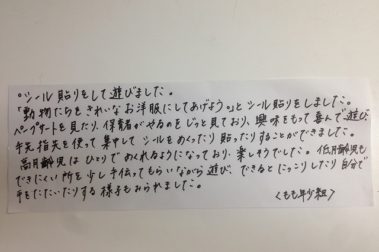 ○シール貼りをして遊びました。
「動物たちをきれいなお洋服にしてあげよう。」とシール貼りをしました。
ペープサートを見たり、保育者がやるのをじっと見ており、興味をもって喜んで遊び
手先指先を使って集中してシールをめくったり貼ったりすることができました。
高月齢児はひとりでめくれるようになっており、楽しそうでした。低月齢児も
できにくい所を少し手伝ってもらいながら遊び、できるとにっこりしたり自分で
手をたたいたりする様子もみられました。
〈もも年少組〉